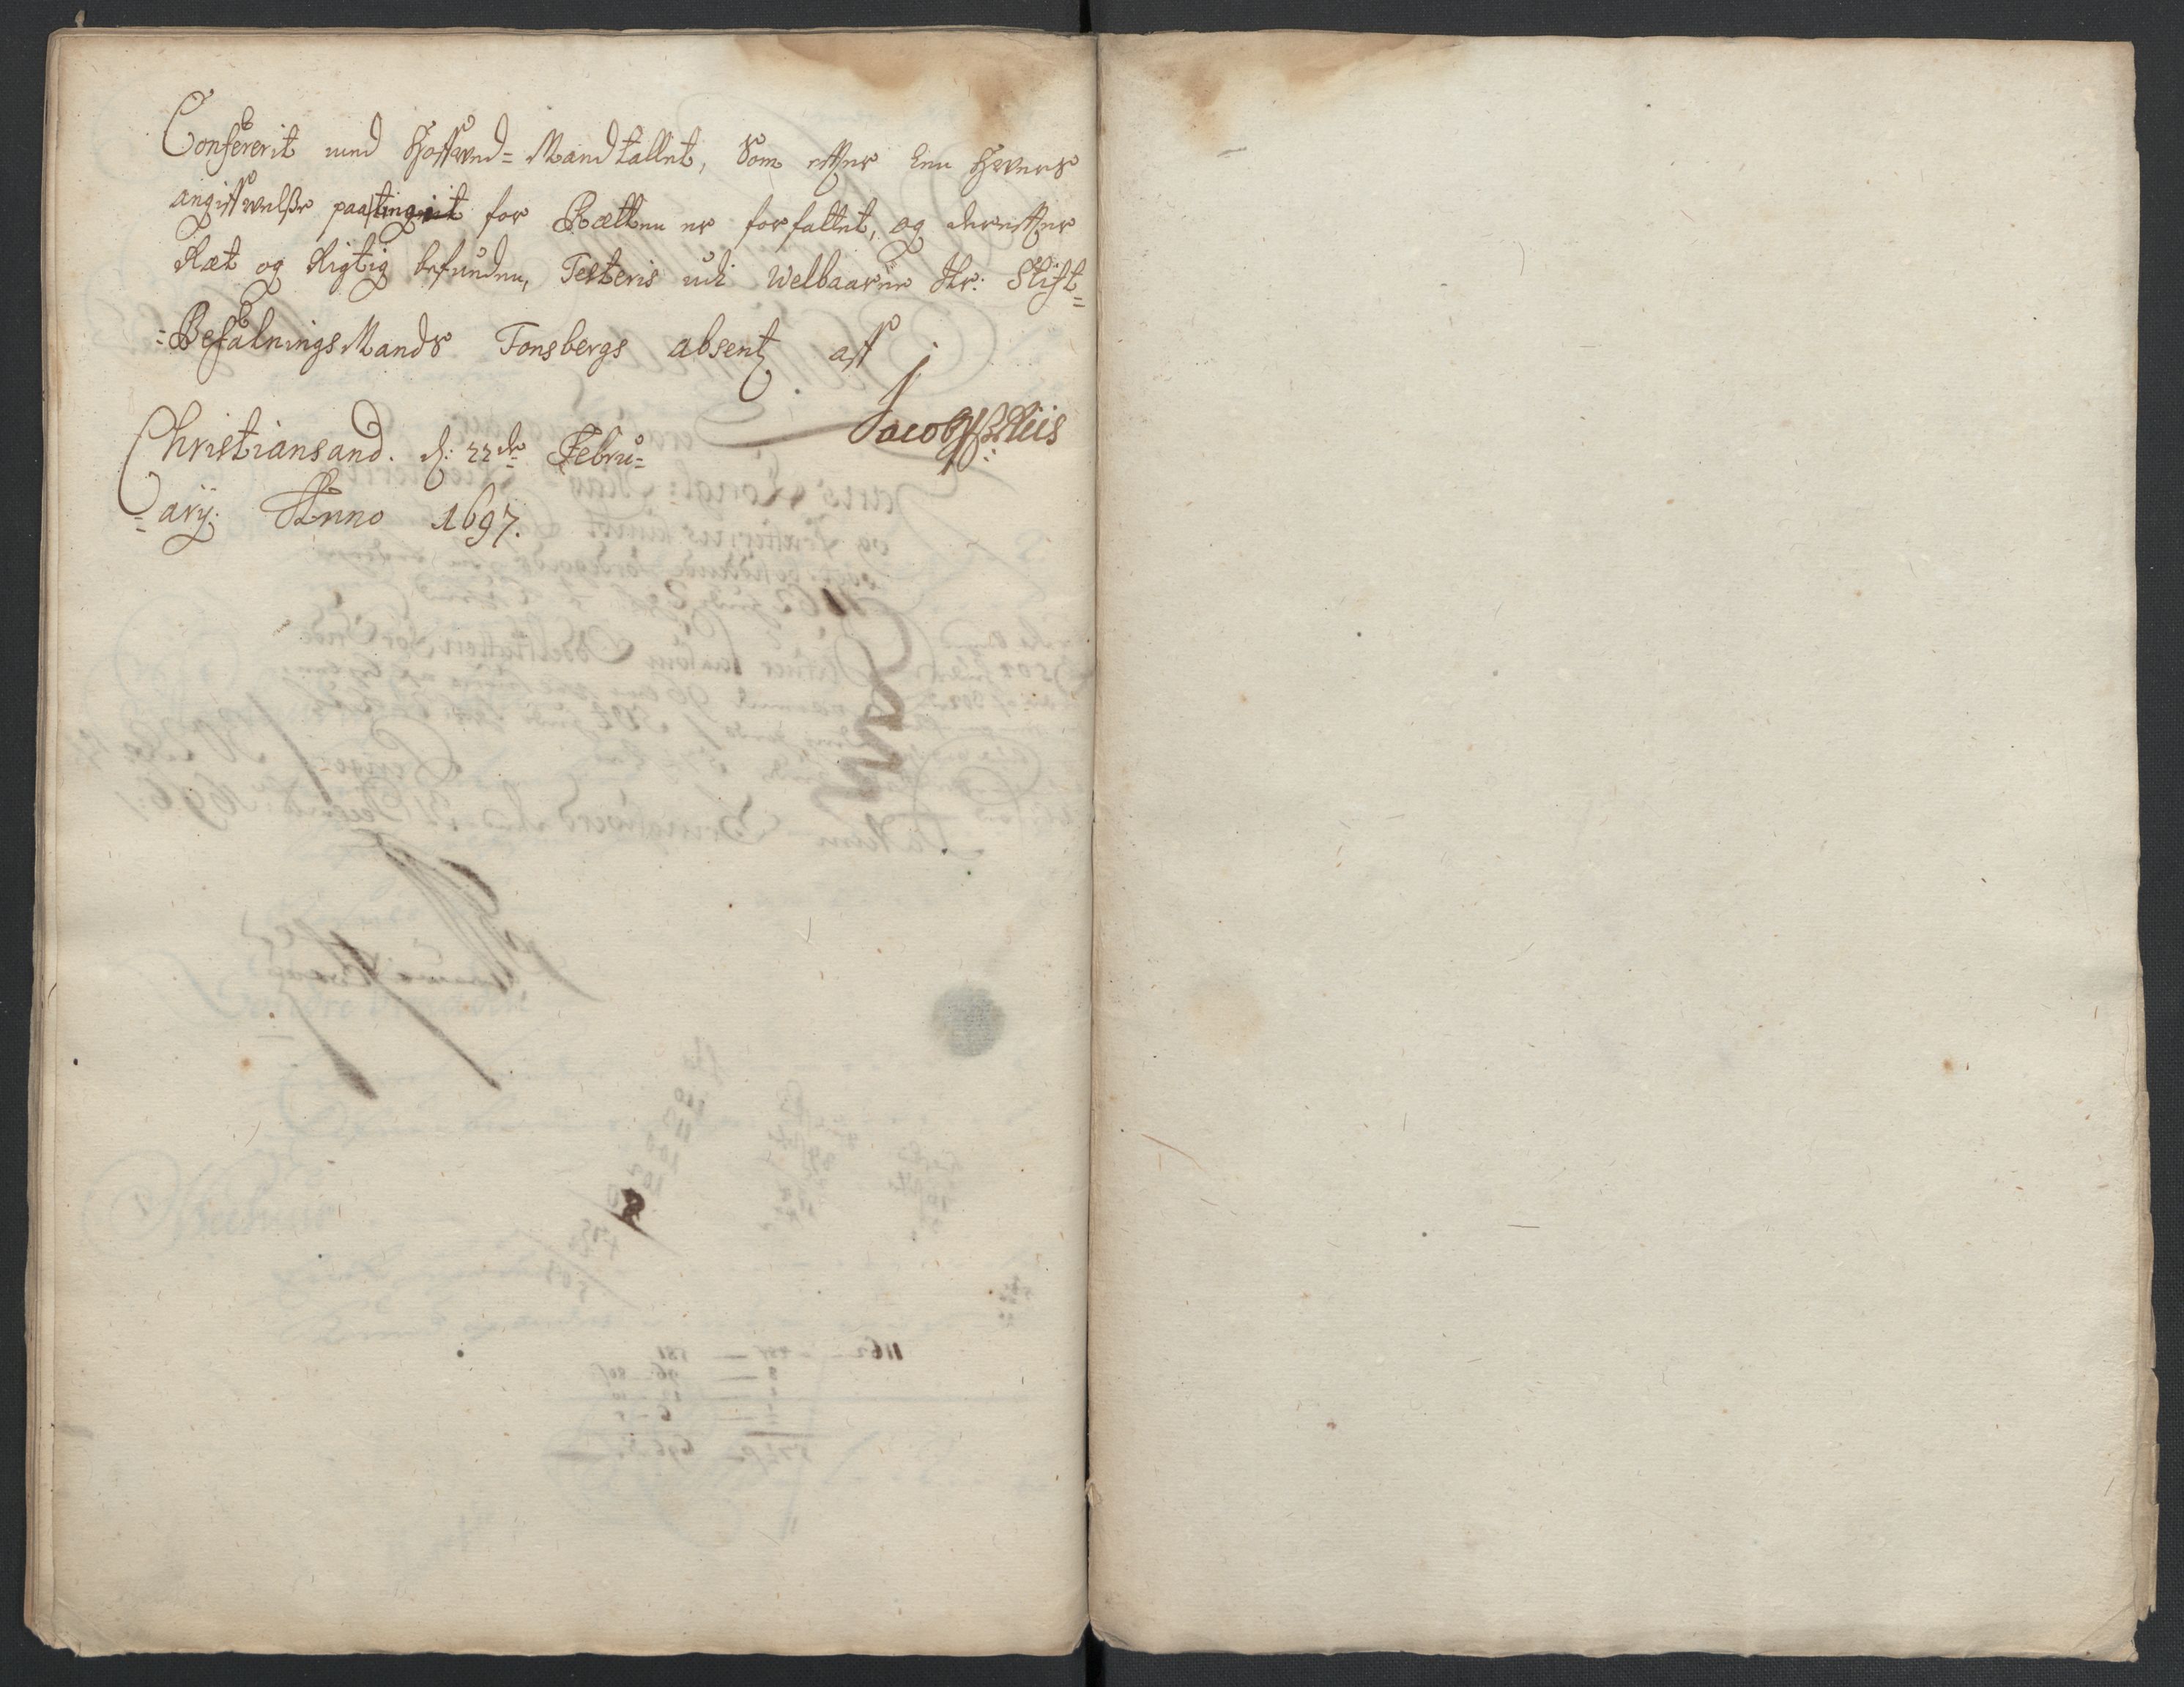 Confererit med Hoffved= Mandtallet, som efter een hvers
angifvelße paa tinget for Rætten er forfattet, og derefter
Ræt og Rigtig befunden, Testeris udi Welbaarne Hr: Stift=
=Befalnings Mands Tonsbergs absentz aff
Christiansand. d: 22de Febru=
=arij. Anno 1697.